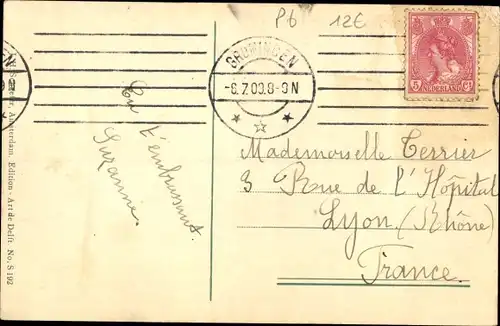 P6 12€
GRONINGEN
-6.7.09.8-9N
5 NEDERLAND Ct
EN
9N
En t'embrassant.
Suzanne.
Mademoiselle Terrier
3 Rue de l'Hôpital
Lyon (Rhône)
France.
Amsterdam. Edition - Art de Delft. No. S 192